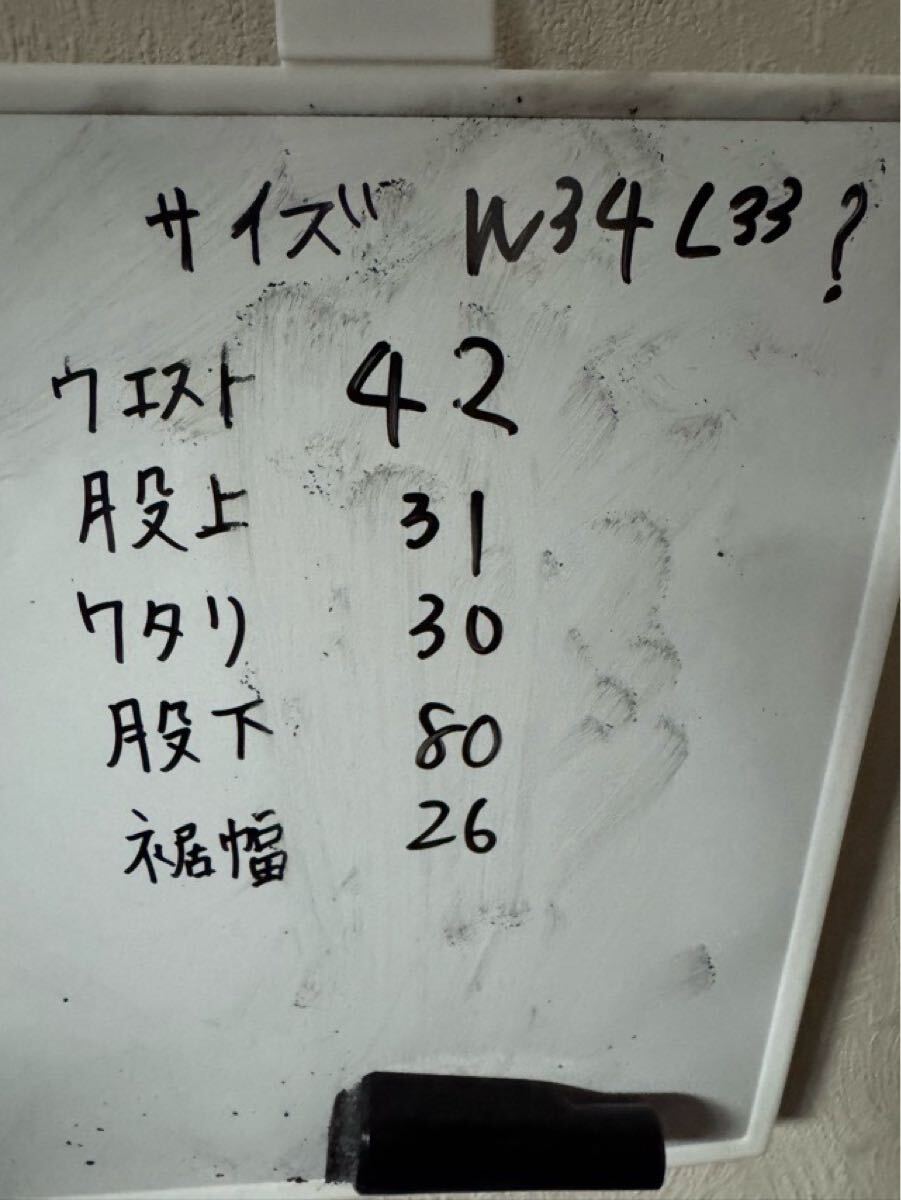 サイズ W34 L33?
ウエスト 42
股上 31
ワタリ 30
股下 80
裾幅 26